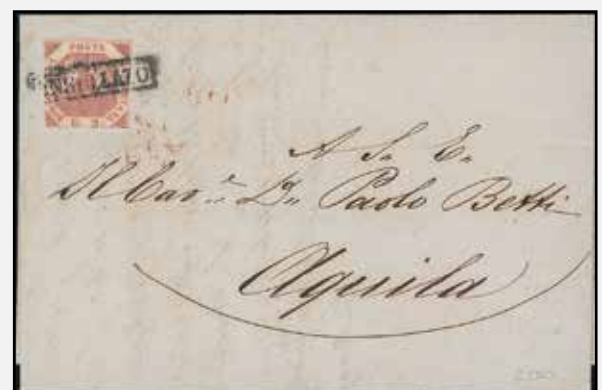 POSTA
ANNULLATO
G 2
A S. E.
Il Cav.r D. Paolo Betti
Aquila